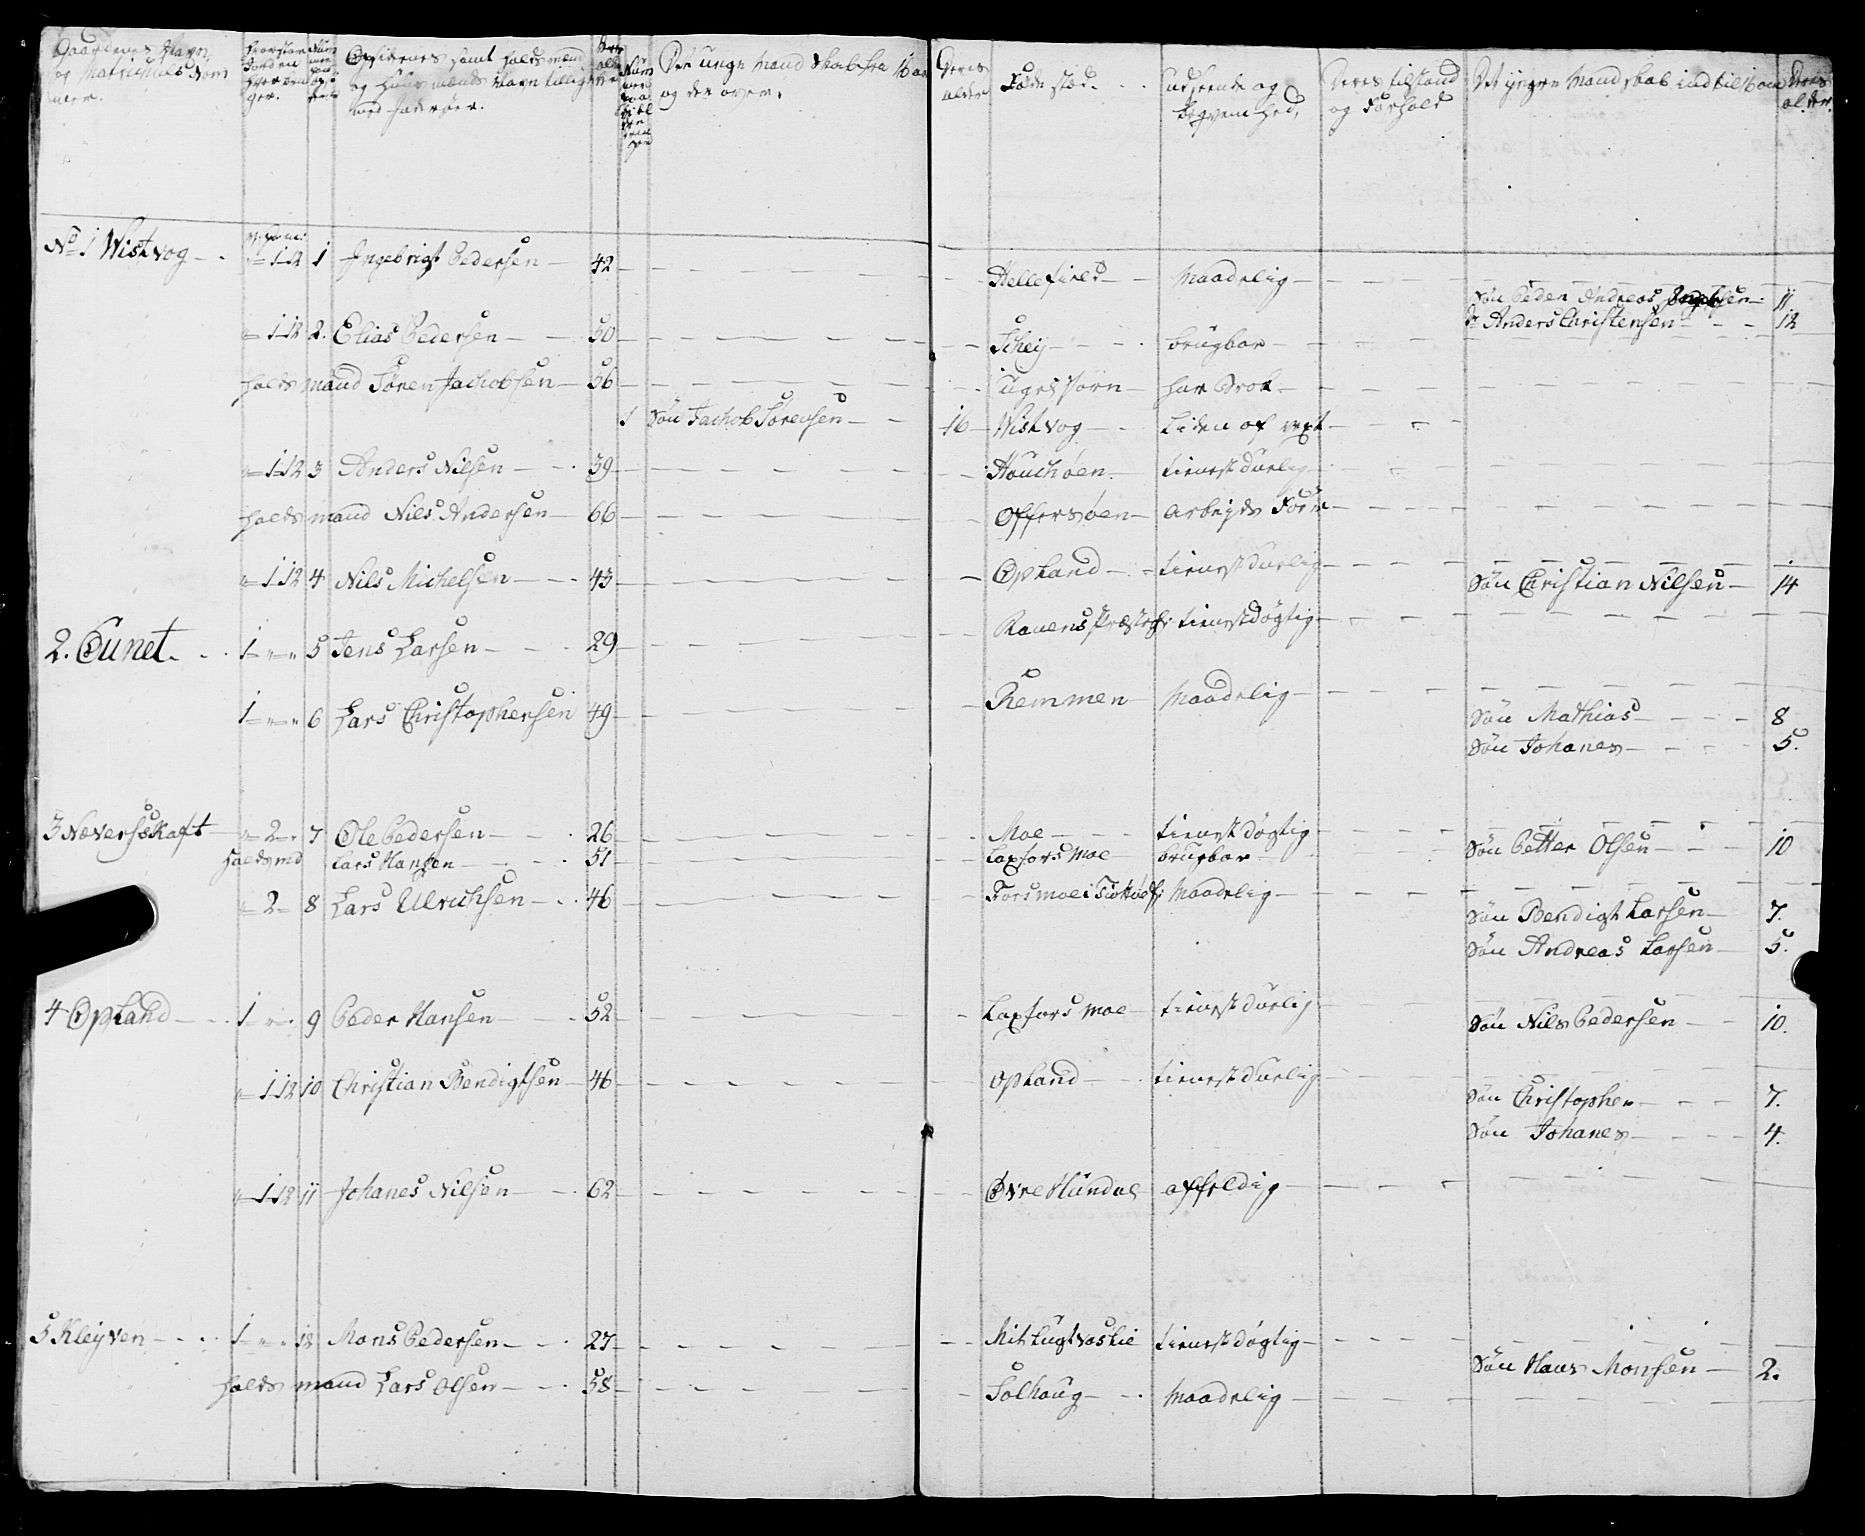 Gaardenes Navn og Matriculs Nommer. Opsidernes samt foldsmænd og Huusmænds Navn tillige med deres alder. Det unge Mandskab fra 16 aar og der over. Deres alder Føde stæd. Udseende og Beqvemhed, Deres tilstand og Forhold Det yngre Mandskab ind til 16 aar Deres alder.
No 1 Wistvog 1-12 1 Ingebrigt Pedersen 42 Hellefield Maadelig
Søn Peder Andreas 11
do Anders Christensen 12
1-12 2. Elias Pedersen 50 Schey brugbar
folds mand Søren Jachobsen 56 har Brok
1 Søn Jachob Sørensen 16 Wistvog Liden af vext
1-12 3 Anders Nilsen 39 Houchøen tienstdurlig
folds mand Nils Andersen 66 Offersøen Arbeyds Før
1 12 4 Nils Michelsen 43 Opland tienstdurlig Søn Christian Nilsen 14
2. Bunet 1 5 Jens Larsen 29 Ranens Præsteg: tienstdøgtig
1 6 Lars Christophersen 49 Remmen Maadelig
Søn Mathias 8
Søn Johanes 5.
3 Næversskaft 2 7 Ole Pedersen 26 Moe tienstdøgtig Søn Petter Olsen 10
foldsmd Lars Hansen 51 Laxfors Moe brugbar
2 8 Lars Ulrichsen 46 Forsmoe i Maadelig
Søn Bendigt Larsen 7.
Søn Andreas Larsen 5.
4 Opland 1 9 Peder Hansen 52 Laxfors Moe tienstdurlig Søn Nils Pedersen 10.
1 12 10 Christian Bendigtsen 46 Opland tienstdurlig
Søn Christopher 7.
Søn Johanes 4.
1 12 11 Johanes Nilsen 62 Øvre Hundal affeldig
5 Kleyven 1 12 Mons Pedersen 27 tienstdøgtig
Søn Hans Monsen 2.
folds mand Lars Olsen 58 Solhoug Maadelig